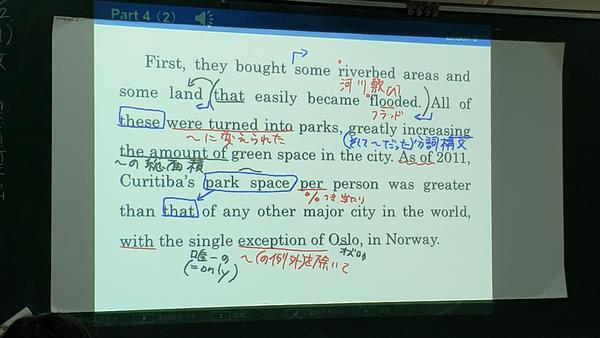 Part 4 (2)
First, they bought some riverbed areas and
河川敷の
some land (that easily became flooded.) All of
フラッド
these were turned into parks, greatly increasing
〜に変えられた
(そして〜だった)分詞構文
the amount of green space in the city. As of 2011,
〜の総面積
Curitiba's park space per person was greater
につき、当たり
than that of any other major city in the world,
with the single exception of Oslo, in Norway.
唯一の
(=only)
〜(の例外)を除いて
オスロ